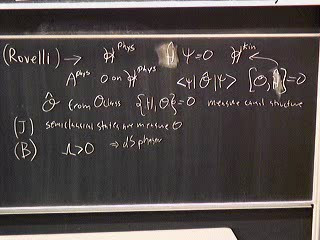 (Rovelli) → ℋ^Phys Ĥ Ψ=0 ℋ^kin
A^Phys O on ℋ^Phys <Ψ|Θ|Ψ> [Θ,H]=0
Θ̂ from Θclass {H,Θ}=0 measure causal structure
(J) semiclassical states measure Θ
(B) Λ>0 ⇒ dS phases